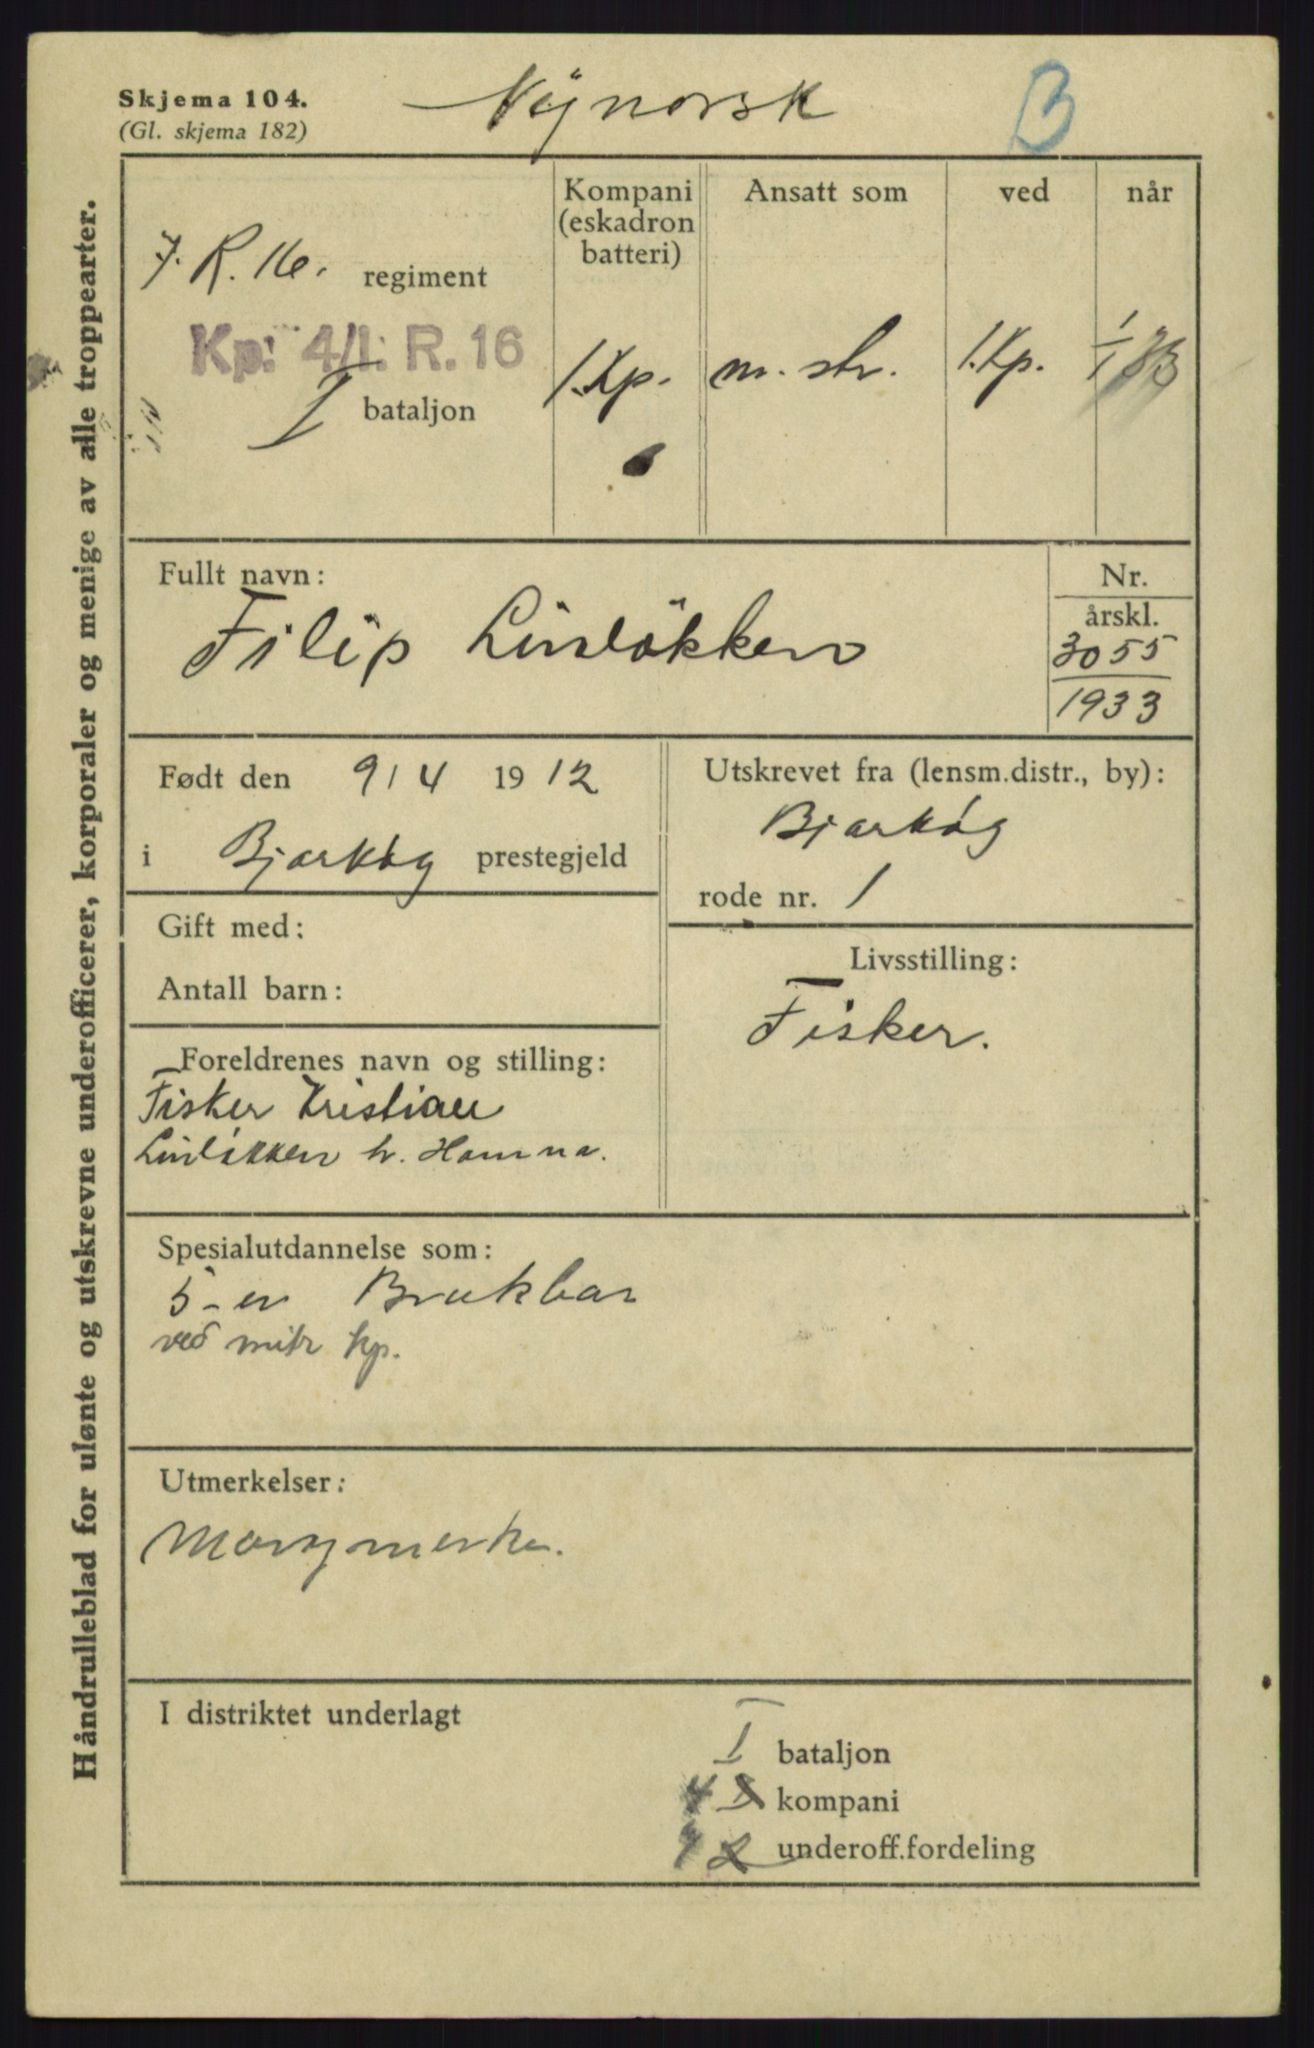 Skjema 104.
(Gl. skjema 182)
Nynorsk
B
Håndrulleblad for ulønte og utskrevne underofficerer, korporaler og menige av alle troppearter.
Kompani (eskadron batteri)
Ansatt som
ved
når
I. R. 16. regiment
Kp. 4/I. R. 16
I bataljon
1. Kp.
m. str.
1. Kp.
1/1 33
Fullt navn:
Filip Linløkken
Nr.
årskl.
3055
1933
Født den 9/4 1912
i Bjarkøy prestegjeld
Utskrevet fra (lensm.distr., by):
Bjarkøy
rode nr. 1
Gift med:
Antall barn:
Livsstilling:
Fisker.
Foreldrenes navn og stilling:
Fisker Kristian
Linløkken h. Hamna.
Spesialutdannelse som:
5-er Brukbar
ved mitr kp.
Utmerkelser:
Marsjmerke.
I distriktet underlagt
I bataljon
4 kompani
2 underoff.fordeling